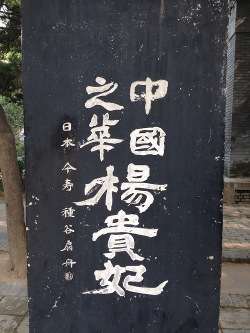 中國
之華
楊貴妃
日本 仐寿 種谷扇舟